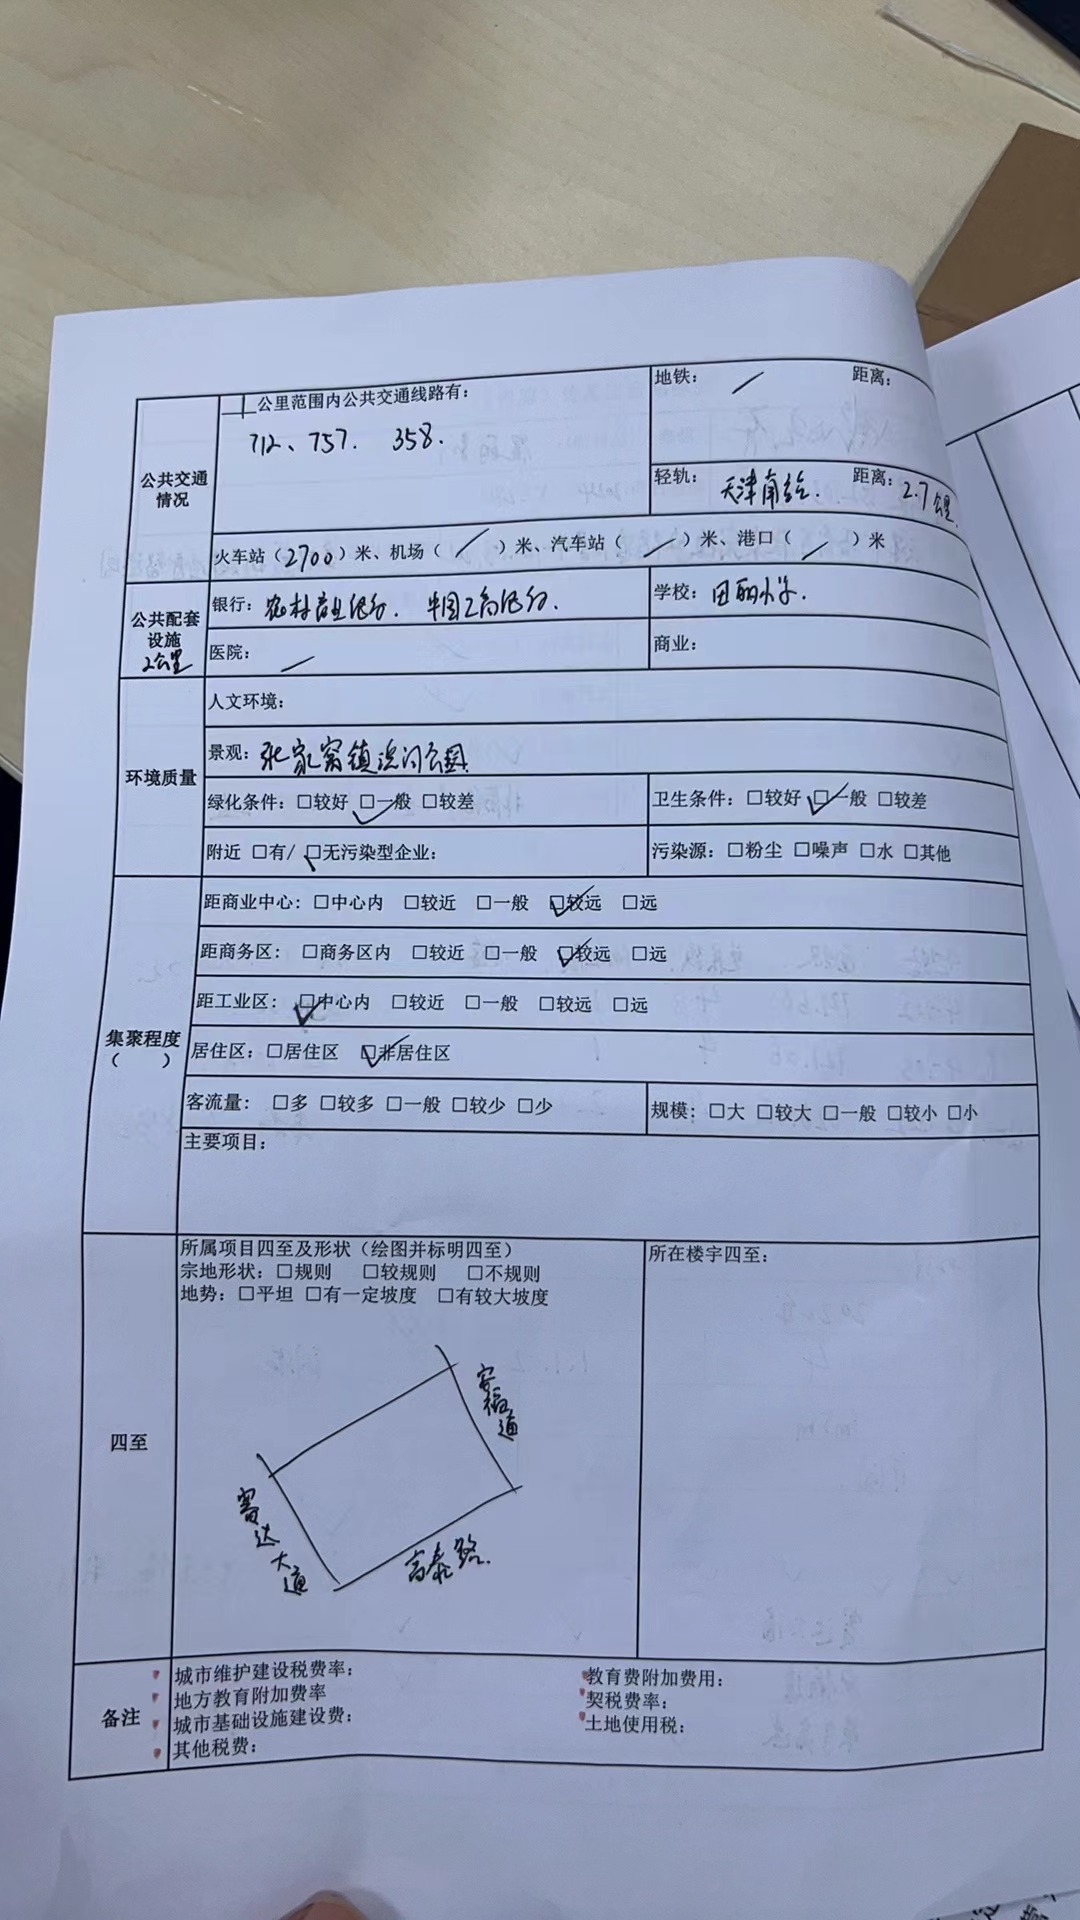 1公里范围内公共交通线路有：
712、757. 358.
地铁： / 距离：
公共交通
情况
轻轨： 天津南站. 距离：2.7公里.
火车站（2700）米、机场（/）米、汽车站（/）米、港口（/）米
公共配套
设施
2公里
银行：农村商业银行. 中国工商银行.
学校：田丽小学.
医院： /
商业：
环境质量
人文环境：
景观：张家窝镇滨河公园
绿化条件：□较好 ☑一般 □较差
卫生条件：□较好 ☑一般 □较差
附近 □有/ ☑无污染型企业：
污染源：□粉尘 □噪声 □水 □其他
集聚程度
（ ）
距商业中心：□中心内 □较近 □一般 ☑较远 □远
距商务区：□商务区内 □较近 □一般 ☑较远 □远
距工业区：☑中心内 □较近 □一般 □较远 □远
居住区：□居住区 ☑非居住区
客流量：□多 □较多 □一般 □较少 □少
规模：□大 □较大 □一般 □较小 □小
主要项目：
四至
所属项目四至及形状（绘图并标明四至）
宗地形状：□规则 □较规则 □不规则
地势：□平坦 □有一定坡度 □有较大坡度
所在楼宇四至：
安福道
赛达大道
高泰路.
备注
城市维护建设税费率：
地方教育附加费率
城市基础设施建设费：
其他税费：
教育费附加费用：
契税费率：
土地使用税：